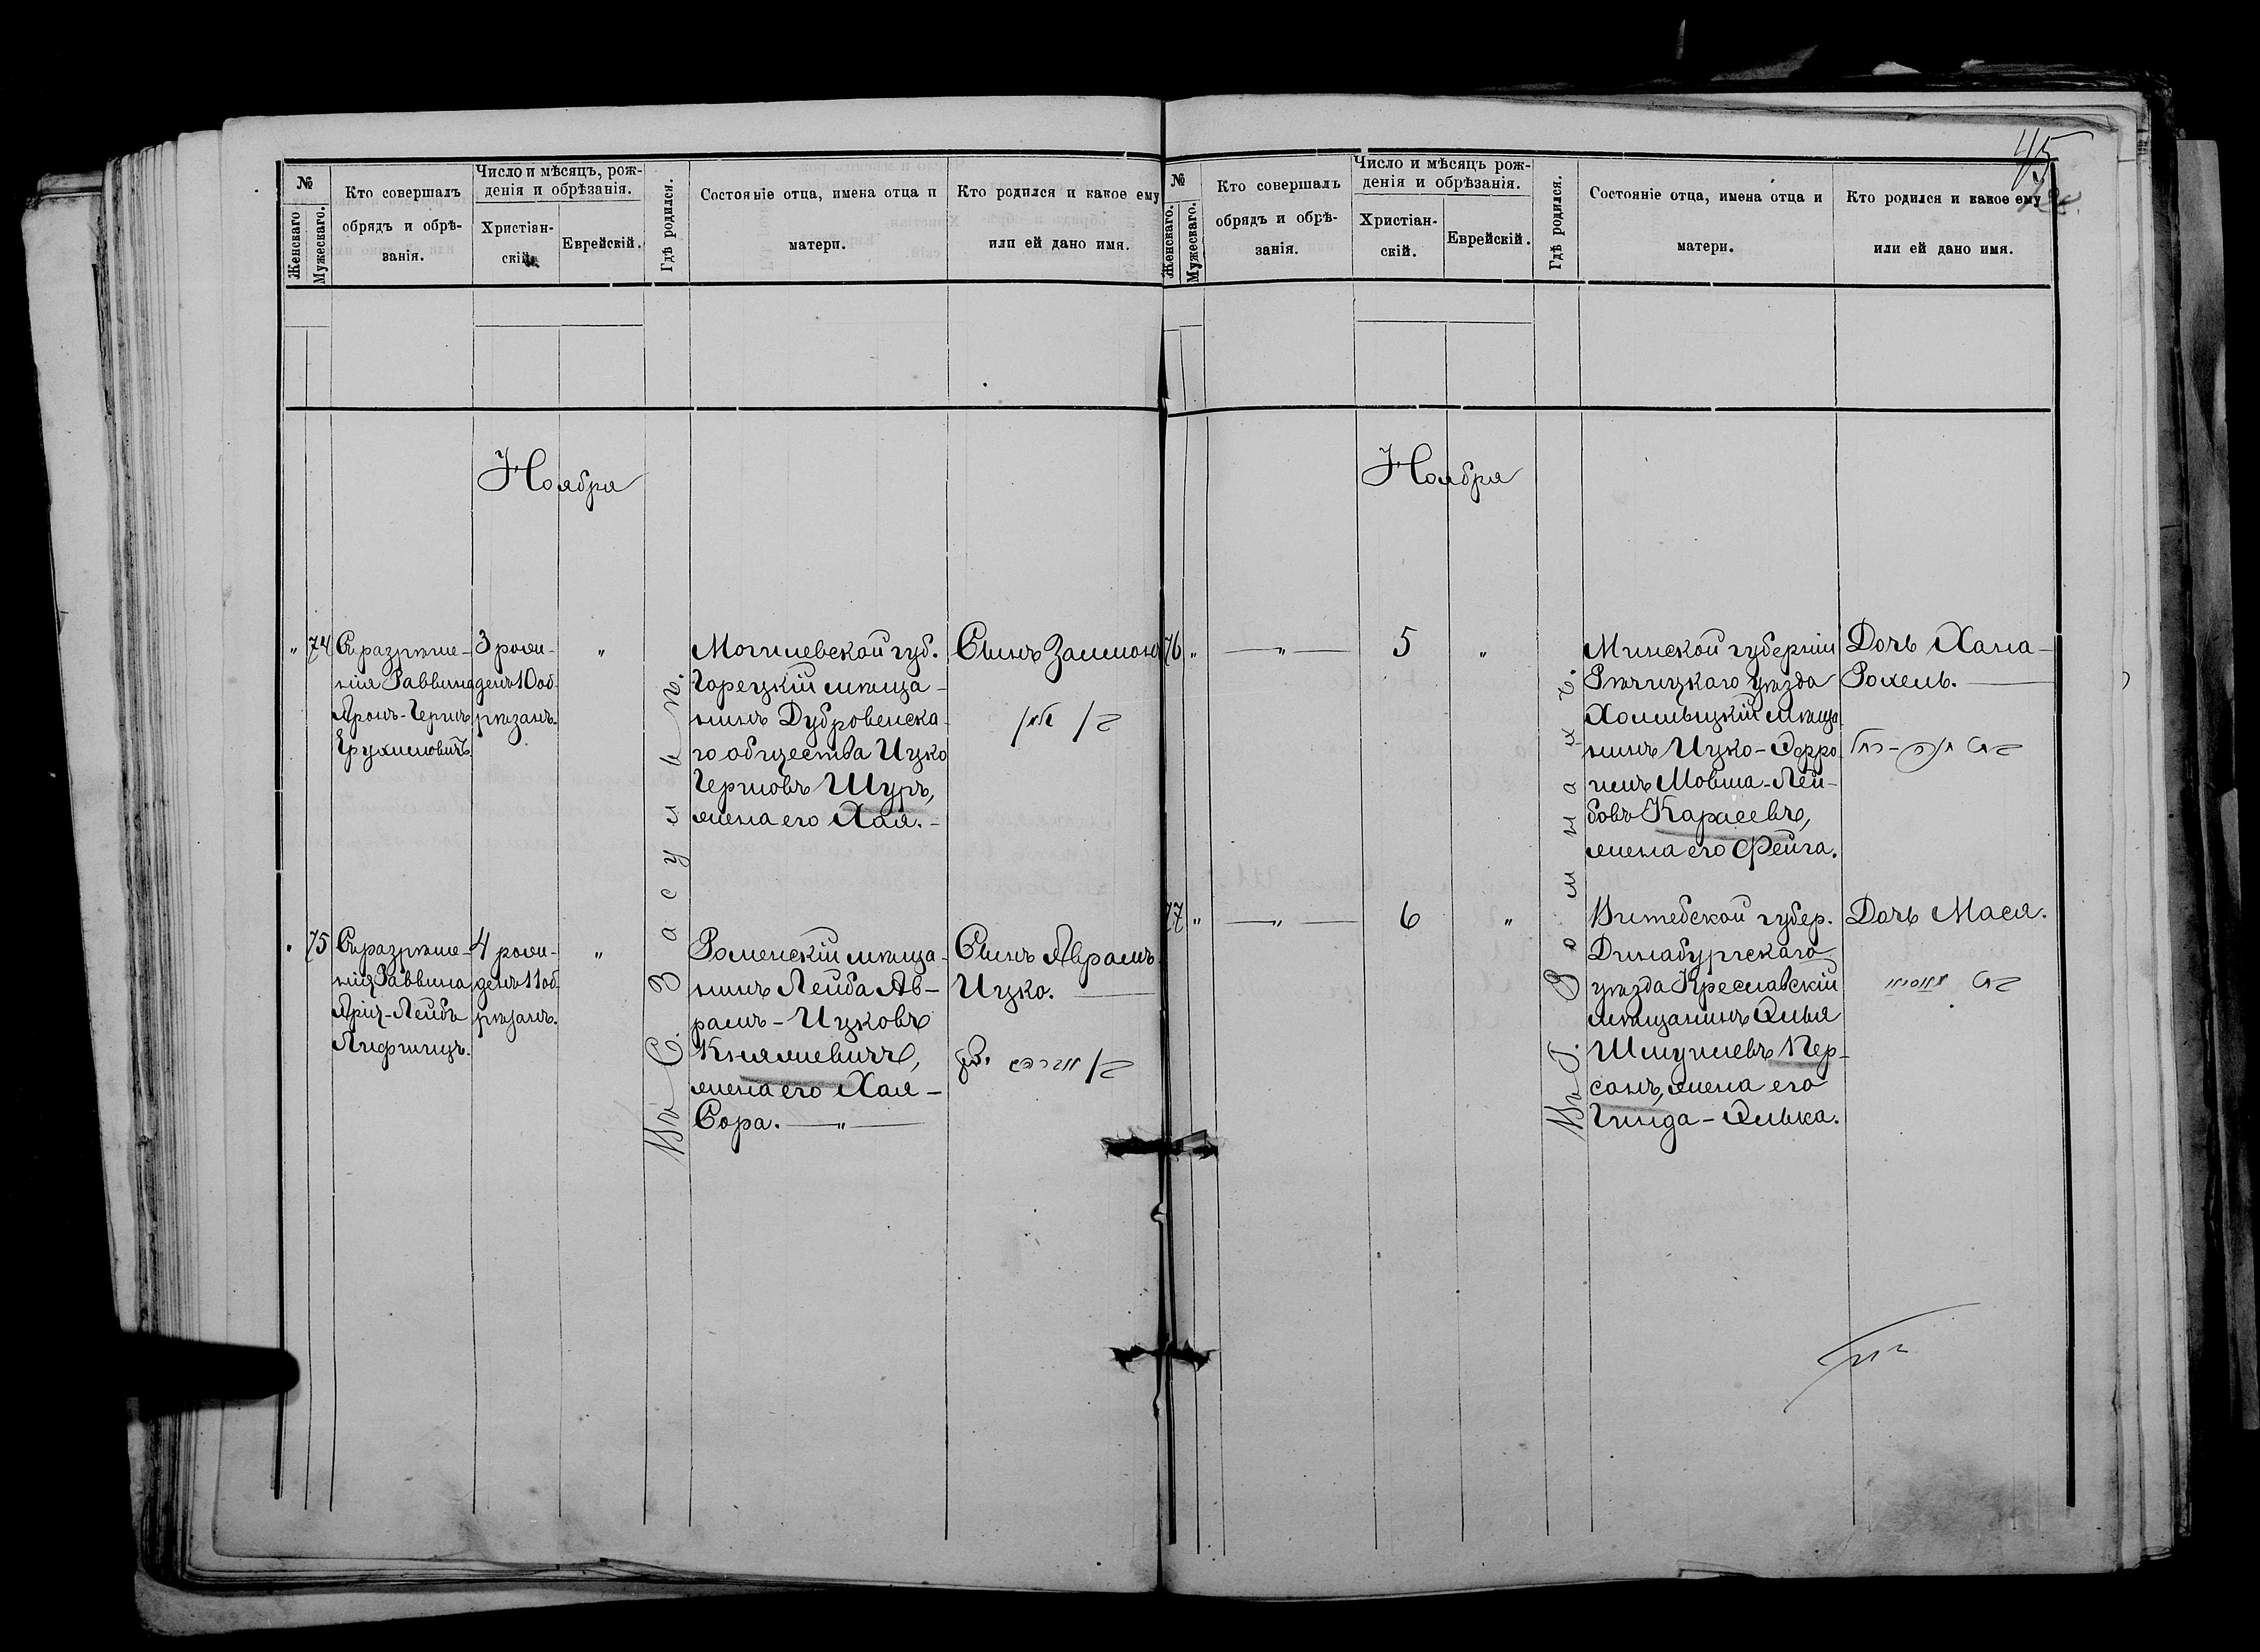 45
№
Женскаго
Мужескаго.
Кто совершалъ
обрядъ и обрѣ-
занія.
Число и мѣсяцъ, рож-
денія и обрѣзанія.
Христіан-
скій.
Еврейскій.
Гдѣ родился.
Состояніе отца, имена отца и
матери.
Кто родился и какое ему
или ей дано имя.
Ноября
„ 74
Съ разрѣше-
нія Раввина
Аронъ-Герцъ
Ерухимовичъ.
3 рож-
денъ 10 об-
рѣзанъ.
„
Могилевской губ.
Горецкій мѣща-
нинъ Дубровенска-
го общества Ицко
Герцовъ Шуръ,
жена его Хая.-
Сынъ Залмонъ
75
Съ разрѣше-
нія Раввина
Арія-Лейбъ
Лифшицъ.
4 рож-
денъ 11 об-
рѣзанъ.
„
Роменскій мѣща-
нинъ Лейба Ав-
рамъ-Ицковъ
Княжевичъ,
жена его Хая-
Сора. —„—
Сынъ Аврамъ
Ицко.
Въ С. Засульѣ.
№
Женскаго.
Мужескаго.
Кто совершалъ
обрядъ и обрѣ-
занія.
Число и мѣсяцъ рож-
денія и обрѣзанія.
Христіан-
скій.
Еврейскій.
Гдѣ родился.
Состояніе отца, имена отца и
матери.
Кто родился и какое ему
или ей дано имя.
Ноября
76 „ —„— 5 „
Минской губерніи
Рѣчицкаго уѣзда
Холмѣцкій мѣща
нинъ Ицко-Эфро
имъ Мовша-Лей-
бовъ Карасевъ,
жена его Фейга.
Дочь Хана-
Рохель.
77 „ —„— 6 „
Витебской губер.
Динабургскаго
уѣзда Креславскій
мѣщанинъ Элья
Шмуилевъ Пер-
сонъ, жена его
Гинда-Элька.
Дочь Мася.
Въ Г. Ромнахъ.